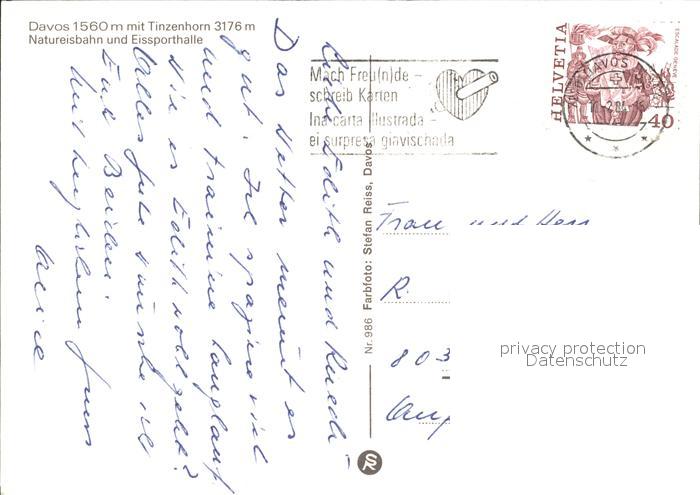 Davos 1560 m mit Tinzenhorn 3176 m
Natureisbahn und Eissporthalle
Mach Freu(n)de –
schreib Karten
Ina carta illustrada –
ei surpresa giavischada
DAVOS
HELVETIA
ESCALADE GENÈVE
40
Liebe Edith und Ruedi –
Das Wetter meint es
gut. Ich spaziere viel
und trainiere Langlauf
Wie es Edith wohl geht?
Alles Gute wünsche ich
Euch Beiden.
mit herzlichem Gruss
Nr. 986 Farbfoto: Stefan Reiss, Davos
SR
Frau und Herr
R.
803
privacy protection
Datenschutz